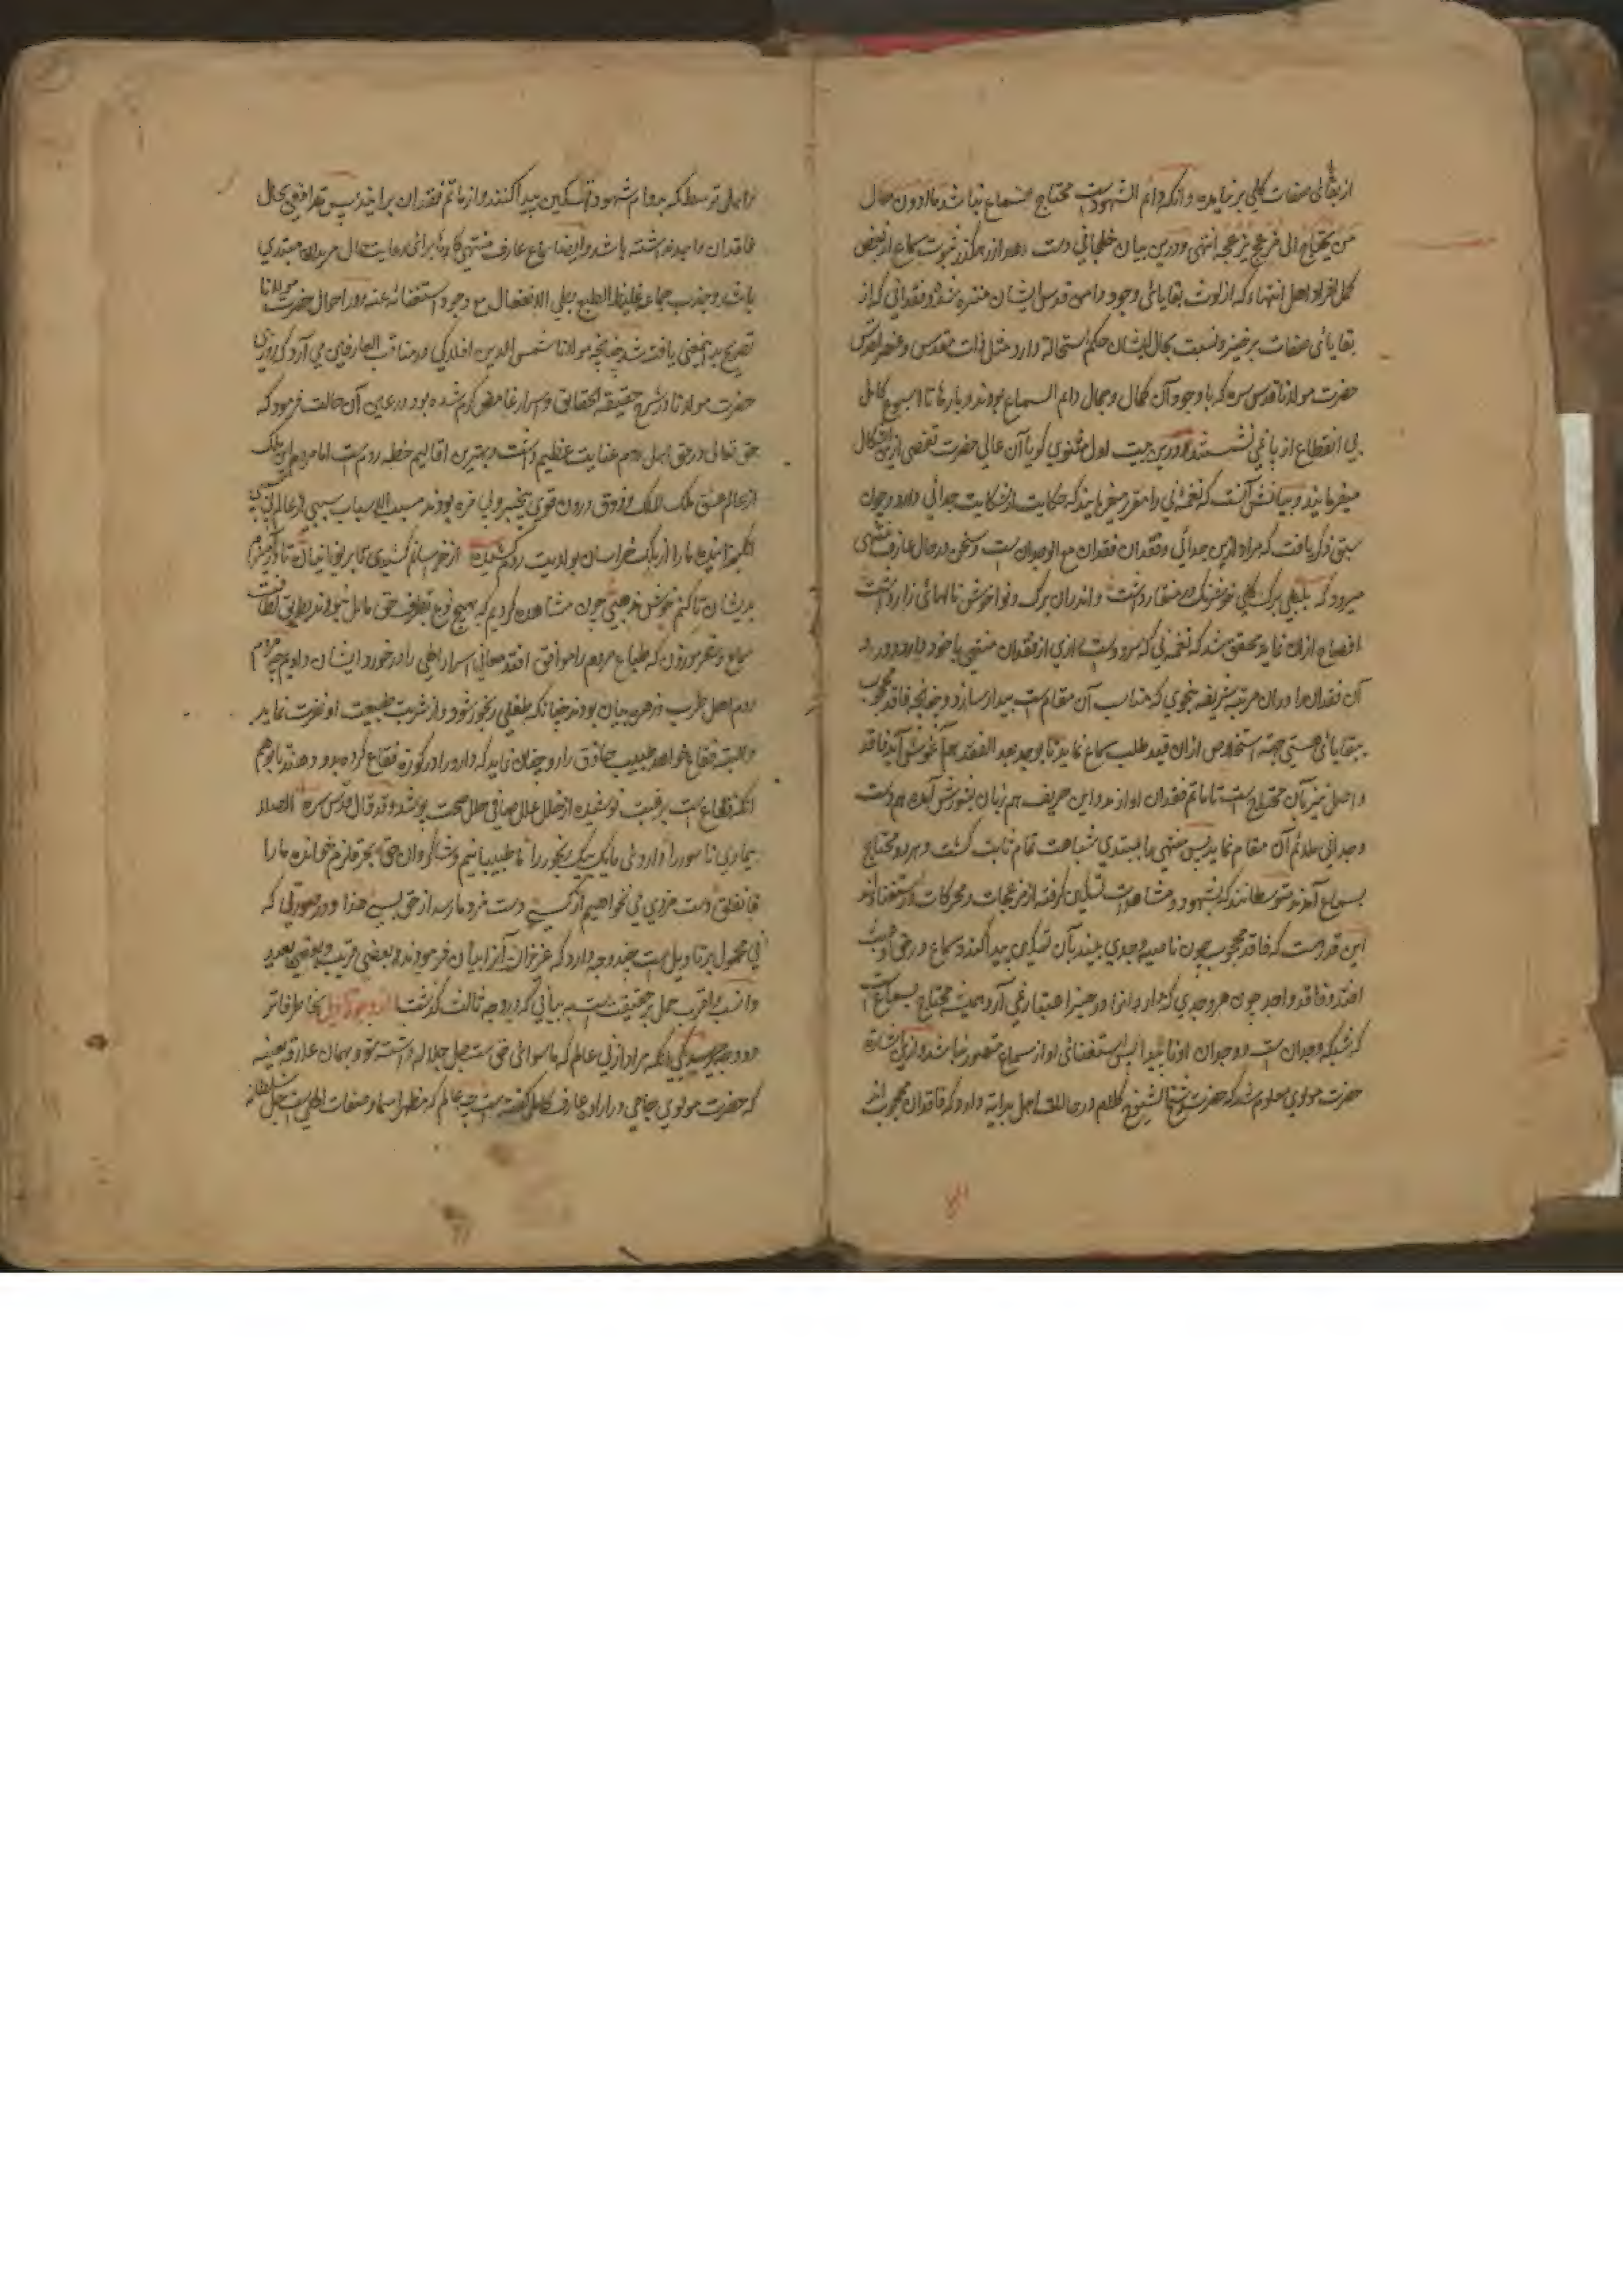 از بقائی صفات کلی بر نیامده و آنکه دائم الشهودست محتاج سماع نباشد مادون حال
من یحتاج الی مزعج یزعجه انتهی و درین بیان خلجانی دست دهد از رهگذر ثبوت سماع از بعض
کمل افراد اهل انتهاء که از لوث بقایائی وجود دامن قدس ایشان منزه شده و فقدانی که از
بقایائی صفات برخیزد نسبت بحال ایشان حکم استحاله دارد مثل ذات مقدس و عنصر اقدس
حضرت مولانا قدس سره که با وجود آن کمال و جمال دایم السماع بودند و بارها تا اسبوع کامل
بی انقطاع از پا نمی نشستند و درین بیت اول مثنوی گویا آن عالی حضرت تفصی ازین اشکال
میفرمایند و بیانش آنست که نغمه نی را مقرر میفرمایند که حکایت از شکایت جدائی دارد و چون
سبق ذکر یافت که مراد ازین جدائی و فقدان فقدان مع الوجدان ست و سخن در حال عارف منتهی
میرود که بلبلی برگ گلی خوشرنگ در منقار داشت و اندران برگ و نوا خوش نالهائی زار داشت
افصاح ازان نماید محقق شد که نغمه نی که سرودست اثری از فقدان منتهی با خود دارد و در
آن فقدان را دران مرتبه شریفه بنحوی که مناسب آن مقام ست بیدار سازد و چنانچه فاقد محجوب
ببقایائی هستی جهة استخلاص ازان قید طلب سماع نماید تا بوجد بعد الفقد هم آغوش آید فاقد
واصل نیز بآن محتاج ست تا ماتم فقدان او از مدد این حریف هم زبان بشورش آمده هم دست
وجدانی ملائم آن مقام نماید پس منتهی را بمبتدی شباهت تمام ثابت گشت و هر دو محتاج
بسماع آمدند متوسطانند که بشهود و مشاهدات تسکین گرفته از مزعجات و محرکات استغنا دارند
این قدر هست که فاقد محجوب چون ناصیه وجدی بیند بآن تسکین پیدا کند و سماع در حق او
افتد و فاقد واجد چون هر وجدی که دارد آنرا در حیز اعتبار نمی آرد همیشه محتاج بسماع
که وجدان او ناپیدا پس استغنائی او از سماع متصور نباشد و ازین اشاره
حضرت مولوی معلوم شد که حضرت شیخ الشیوخ کلام در حالت اهل بدایة دارد که فاقدان محجوب اند
با اهل توسط که بدوام شهود تسکین پیدا کنند و از ماتم فقدان برآیند پس تدافعی بحال
فاقدان واجد نداشته باشد و ایضا سماع عارف منتهی گاه باشد برائی رعایت حال مریدان مبتدی
باشد و جذب جماعه غلیظ الطبع بطی الانفعال مع وجود استغنائه عنه و در احوال حضرت مولانا
تصریح باینمعنی یافت شد چنانچه مولانا شمس الدین افلاکی در مناقب العارفین می آرد که روزی
حضرت مولانا در شرح حقیقة الحقایق و اسرار غامض گرم شده بود در عین آن حالت فرمود که
حق تعالی در حق اهل روم عنایت عظیم داشت و بهترین اقالیم خطه روم ست اما مردم این ملک
از عالم عشق ملک الملک و ذوق درون قوی بیخبر و بی مزه بودند مسبب الاسباب سببی از عالم بی سببی
انگیزانیده ما را از ملک خراسان بولایت روم کشید از خراسانم کشیدی تا بر یونانیان تا در آمیزم
بدیشان تا کنم خوش مذهبی چون مشاهده کردیم که بهیچ نوع بطرف حق مایل نبودند بطریق لطافت
سماع و شعر موزون که طباع مردم را موافق افتد معانی اسرار الهی را در خورد ایشان دادیم چه مردم
روم اهل طرب و رهین بیان بودند چنانکه طفلی رنجور شود و از شربت طبیب او نفرت نماید
و البته فقاع خواهد طبیب حاذق را روا چنان نماید که دارو را در کوزه فقاع کرده بدو دهد تا بوهم
آنکه فقاع ست برغبت نوشیده از خلل علل صافی حلل صحت پوشد و قد قال قدس سره الصلا
بیماری ناسور را داروئی ما یک بیک رنجور را ما طبیبانیم و شاگردان حق بحر قلزم خوانده ما را
فانفلق دست مزدی می نخواهیم از کسی دست مزد ما رسد از حق بسی هذا و در صورتی که
نی محمول بر تاویل ست چند وجه دارد که عزیزان آنرا بیان فرمودند و بعضی قریب و بعضی بعید
و انسب و اقرب حمل بر حقیقت ست به بیانی که در وجه ثالث گذشت از وجوه تاویل بخاطر فاتر
دو وجه میرسد یکی آنکه مراد از نی عالم که ماسوائی حق ست جل جلاله داشته شود بهمان علاقه بعینه
که حضرت مولوی جامی در اراده عارف کامل گفته ست چه عالم که مظهر اسما و صفات الهی ست جل سلطانه